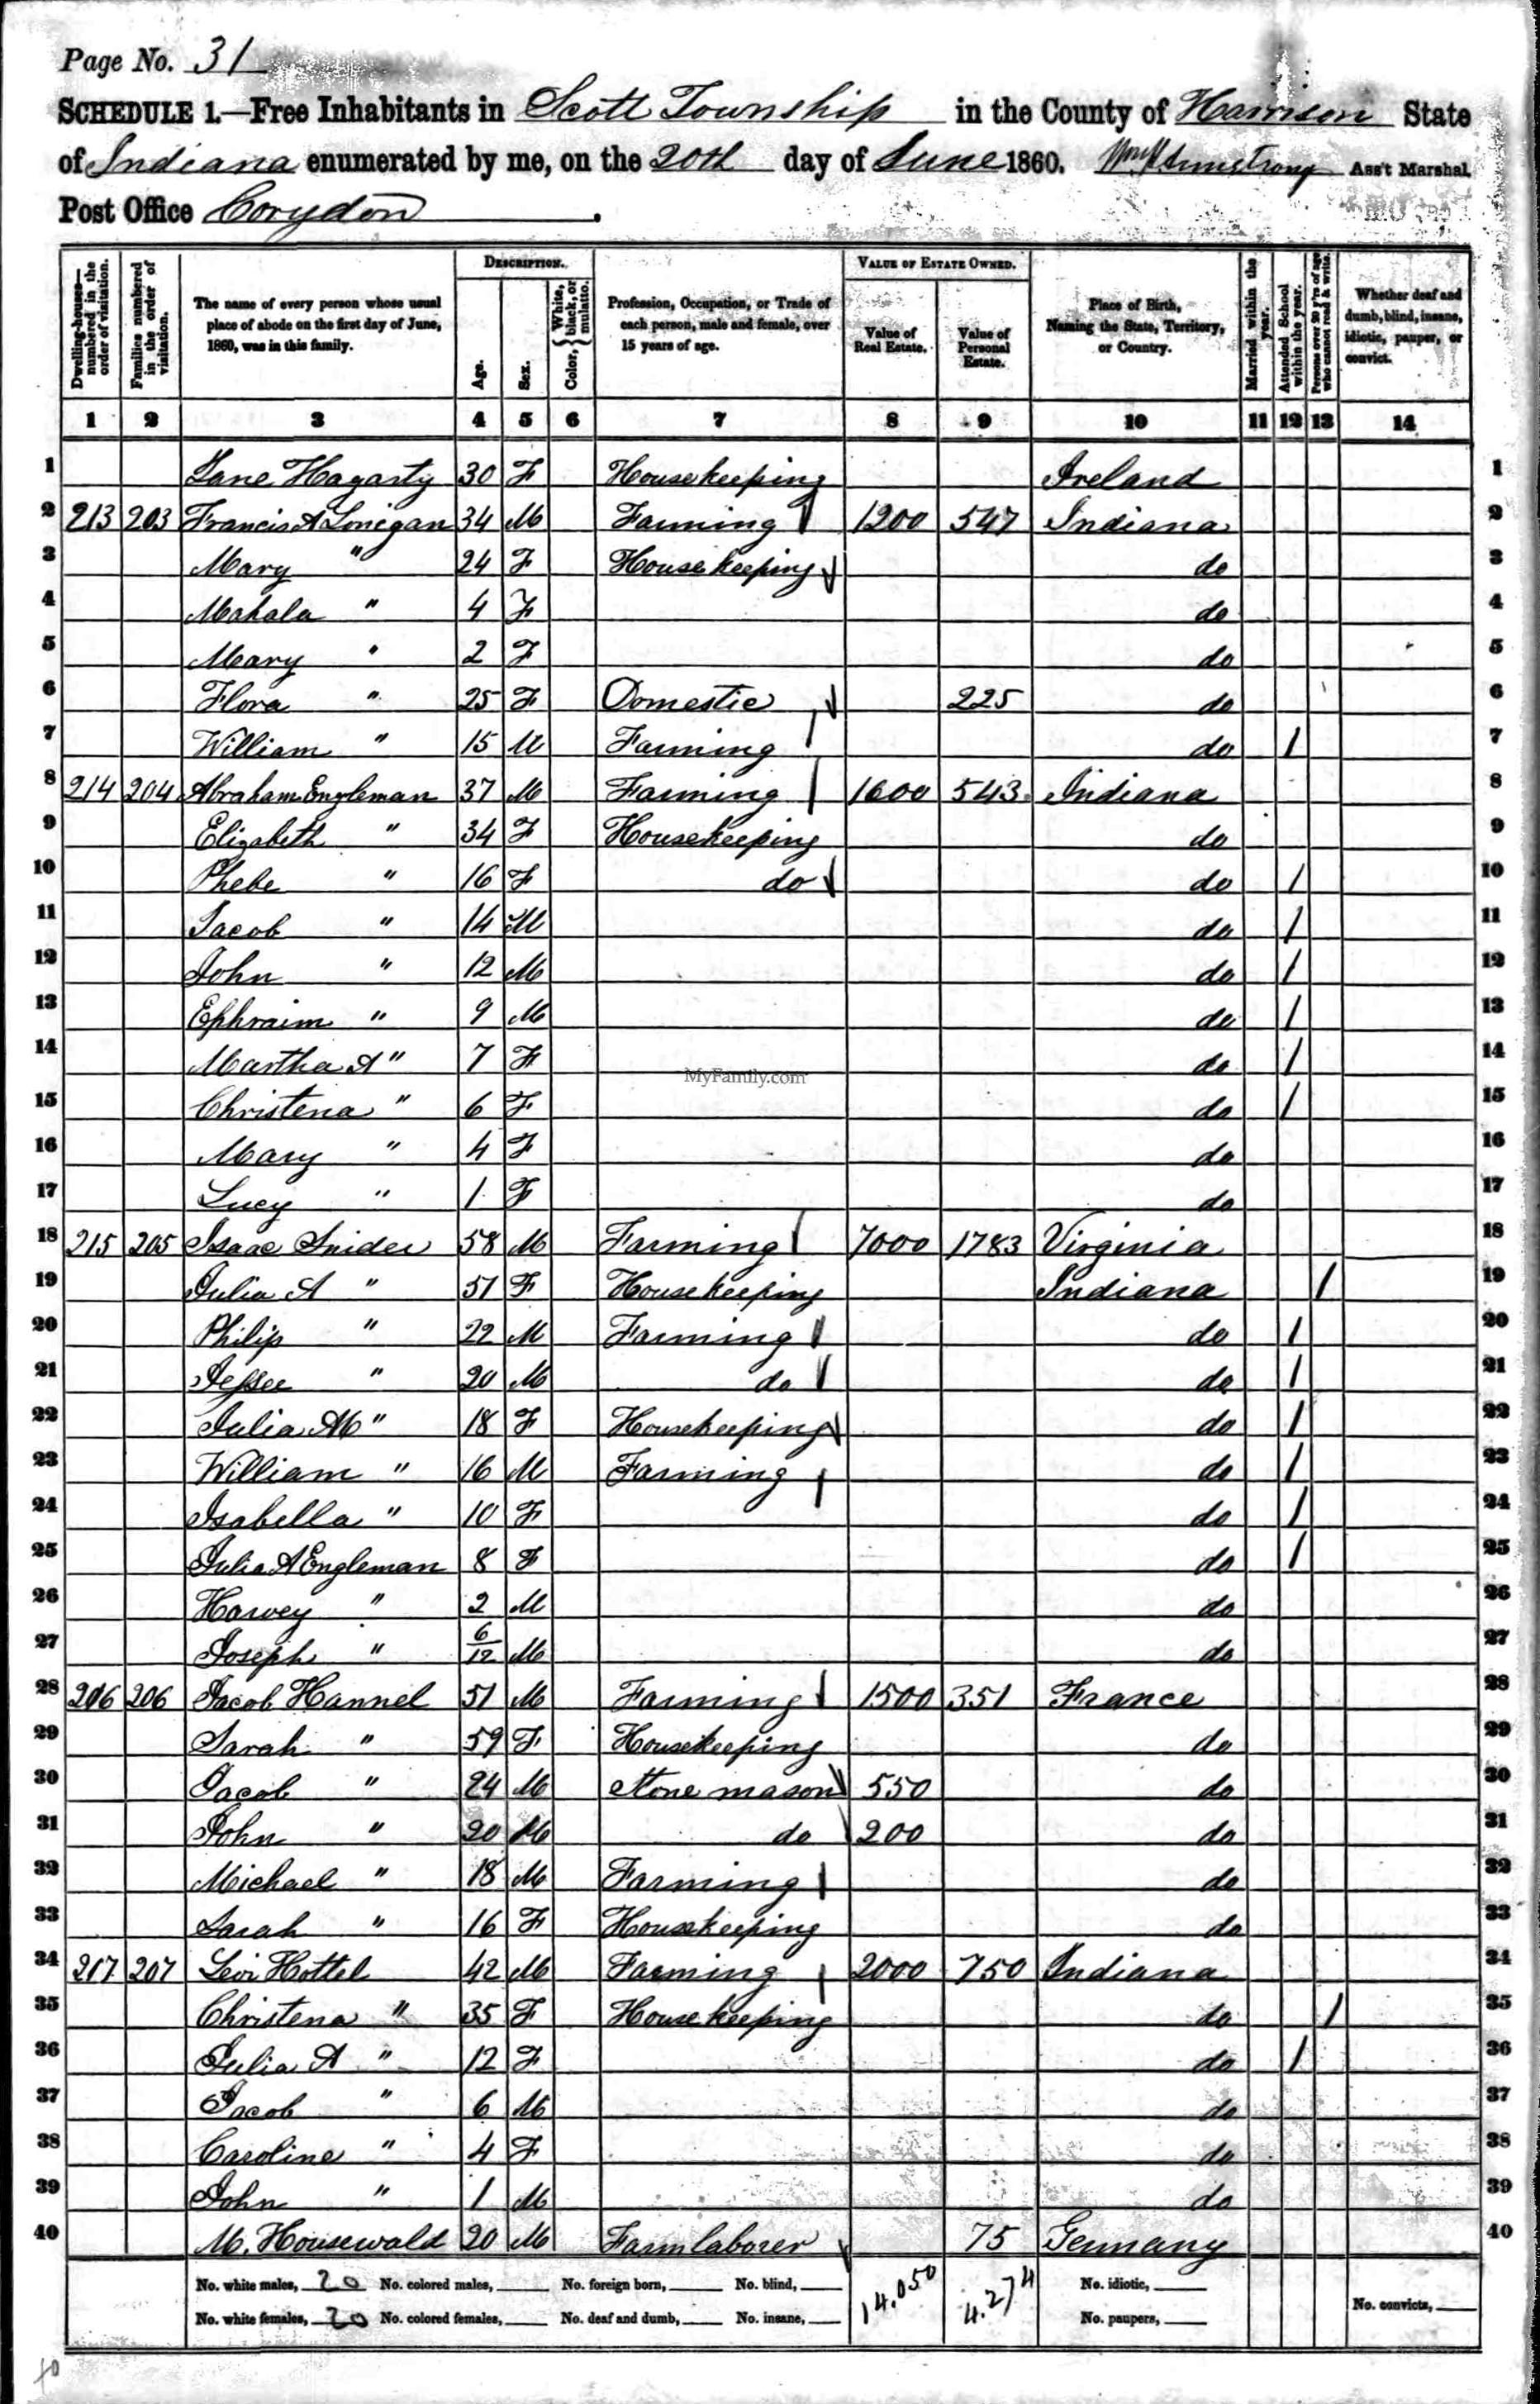 Page No. 31
SCHEDULE 1.—Free Inhabitants in Scott Township in the County of Harrison State
of Indiana enumerated by me, on the 20th day of June 1860. Wm H Armstrong Ass't Marshal.
Post Office Corydon.
Dwelling-houses—numbered in the order of visitation. Families numbered in the order of visitation. The name of every person whose usual place of abode on the first day of June, 1860, was in this family. DESCRIPTION. Age. Sex. Color, White, black, or mulatto. Profession, Occupation, or Trade of each person, male and female, over 15 years of age. VALUE OF ESTATE OWNED. Value of Real Estate. Value of Personal Estate. Place of Birth, Naming the State, Territory, or Country. Married within the year. Attended School within the year. Persons over 20 y'rs of age who cannot read & write. Whether deaf and dumb, blind, insane, idiotic, pauper, or convict.
1 2 3 4 5 6 7 8 9 10 11 12 13 14
1 Jane Hagarty 30 F Housekeeping Ireland 1
2 213 203 Francis A Lonigan 34 M Farming 1200 547 Indiana 2
3 Mary " 24 F Housekeeping do 3
4 Mahala " 4 F do 4
5 Mary " 2 F do 5
6 Flora " 25 F Domestic 225 do 6
7 William " 15 M Farming do / 7
8 214 204 Abraham Engleman 37 M Farming 1600 543 Indiana 8
9 Elizabeth " 34 F Housekeeping do 9
10 Phebe " 16 F do do / 10
11 Jacob " 14 M do / 11
12 John " 12 M do / 12
13 Ephraim " 9 M do / 13
14 Martha A " 7 F do / 14
MyFamily.com
15 Christena " 6 F do / 15
16 Mary " 4 F do 16
17 Lucy " 1 F do 17
18 215 205 Isaac Snider 58 M Farming 7000 1783 Virginia 18
19 Julia A " 51 F Housekeeping Indiana / 19
20 Philip " 22 M Farming do / 20
21 Jessee " 20 M do do / 21
22 Julia M " 18 F Housekeeping do / 22
23 William " 16 M Farming do / 23
24 Isabella " 10 F do / 24
25 Julia A Engleman 8 F do / 25
26 Harvey " 2 M do 26
27 Joseph " 6/12 M do 27
28 206 206 Jacob Hannel 51 M Farming 1500 351 France 28
29 Sarah " 59 F Housekeeping do 29
30 Jacob " 24 M Stone mason 550 do 30
31 John " 20 M do 200 do 31
32 Michael " 18 M Farming do 32
33 Sarah " 16 F Housekeeping do 33
34 207 207 Levi Hottel 42 M Farming 2000 750 Indiana 34
35 Christena " 35 F Housekeeping do / 35
36 Julia A " 12 F do / 36
37 Jacob " 6 M do 37
38 Caroline " 4 F do 38
39 John " 1 M do 39
40 M. Housewald 20 M Farm laborer 75 Germany 40
No. white males, 20 No. colored males, No. foreign born, No. blind, 14.050 4.274 No. idiotic,
No. white females, 20 No. colored females, No. deaf and dumb, No. insane, No. paupers, No. convicts,